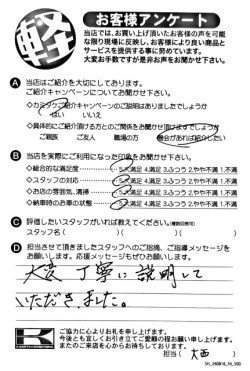 軽
お客様アンケート
当店では、お買い上げ頂いたお客様の声を可能
な限り現場に反映し、お客様により良い商品と
サービスを提供する事に努めています。
大変お手数ですが是非お声をお聞かせ下さい。
A 当店はご紹介を大切にしております。
ご紹介キャンペーンについてお聞かせ下さい。
◇カミタケご紹介キャンペーンのご説明はありましたでしょうか
はい いいえ
◇具体的にご紹介頂ける方とのご関係をお聞かせ頂けますでしょうか
ご親族 ご友人 職場の方 機会があれば紹介したい
B 当店を実際にご利用になった印象をお聞かせ下さい。
◇総合的な満足度 5.大満足 4.満足 3.ふつう 2.やや不満 1.不満
◇スタッフの対応 5.大満足 4.満足 3.ふつう 2.やや不満 1.不満
◇お店の雰囲気、清掃 5.大満足 4.満足 3.ふつう 2.やや不満 1.不満
◇納車時のお車の状態 5.大満足 4.満足 3.ふつう 2.やや不満 1.不満
C 評価したいスタッフがいれば教えてください。(複数回答可)
スタッフ名( )( )( )
D 担当させて頂きましたスタッフへのご指摘、ご指導メッセージを
お願いします。応援メッセージもぜひお願いします。
大変 丁寧に 説明して
いただきました。
ご協力に心よりお礼を申し上げます。
今後とも宜しくお引き立てご愛顧の程お願い申し上げます。
またのご来店を心からお待ちしております。
担当( 大西 )